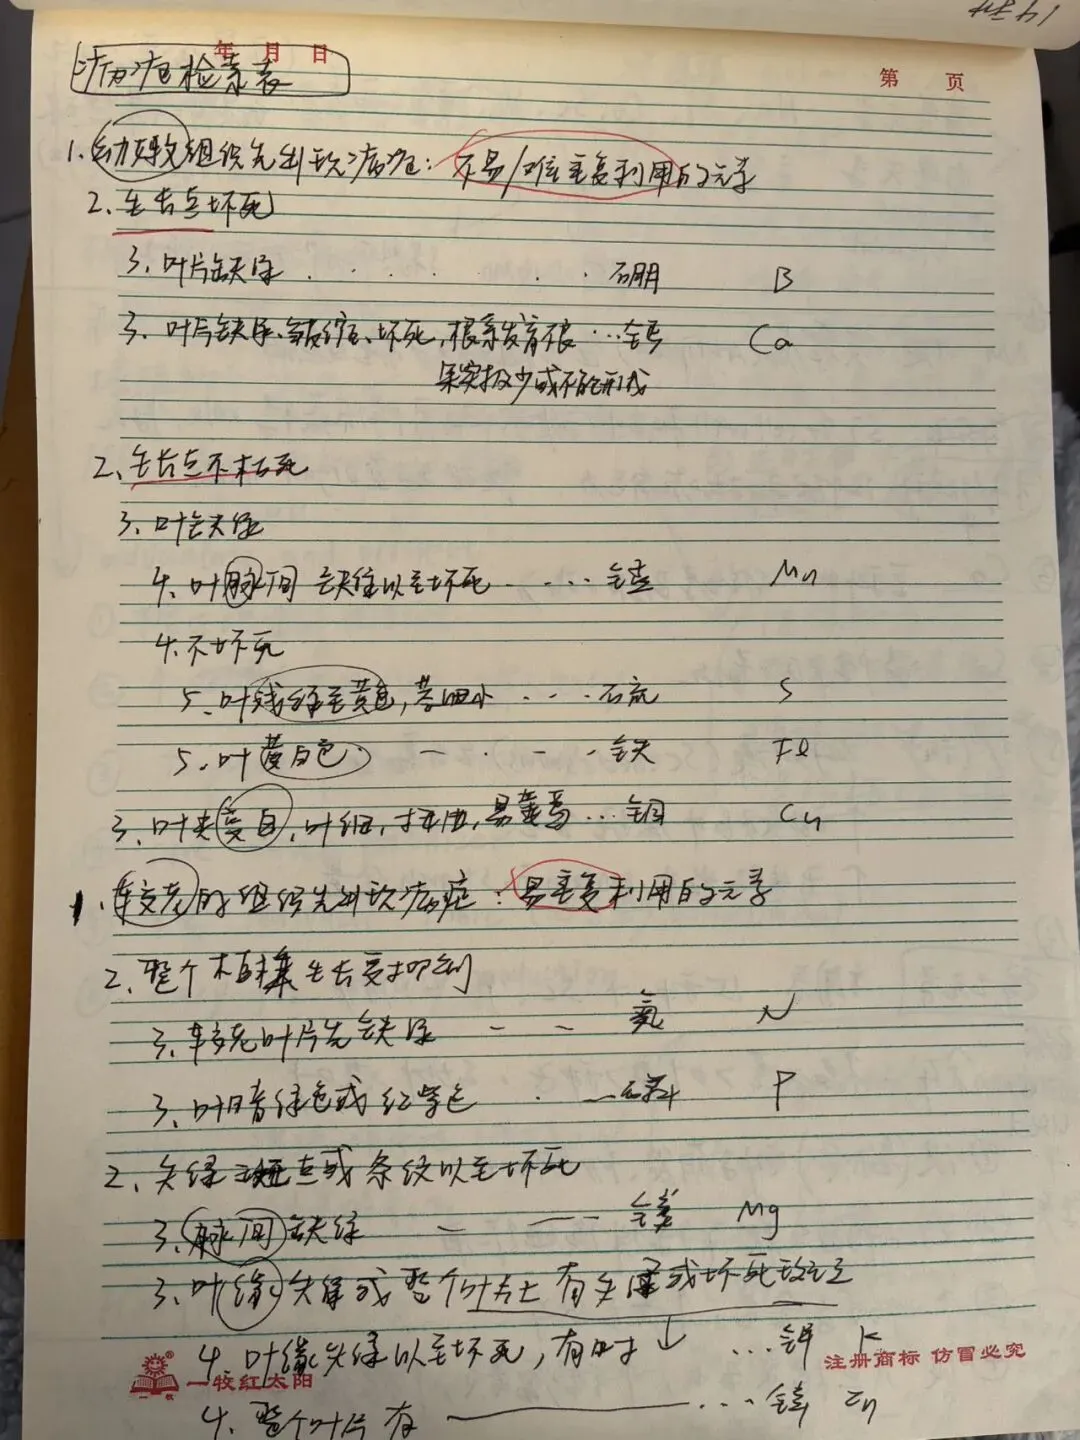 年 月 日
第 页
病症检索表
1. 幼嫩组织先出现病症: 不易/难重复利用的元素
2. 生长点坏死
3. 叶片缺绿 . . . . . . 硼 B
3. 叶片缺绿、皱缩、坏死, 根系发育不良 ... 钙 Ca
果实极少或不能形成
2、生长点不枯死
3. 叶缺绿
4. 叶脉间缺绿以至坏死 . ... 锰 Mn
4. 不坏死
5. 叶淡绿至黄色, 茎细小 . . . . 硫 S
5. 叶黄白色 — . — . 铁 Fe
3. 叶尖变白, 叶细, 扭曲, 易萎蔫 ... 铜 Cu
1. 较老的组织先出现病症: 易重复利用的元素
2. 整个植株生长受抑制
3. 较老叶片先缺绿 — — 氮 N
3. 叶暗绿色或红紫色 . — 磷 P
2、失绿斑点或条纹以至坏死
3. 脉间缺绿 — —— 镁 Mg
3. 叶缘失绿或整个叶片上有失绿或坏死斑点
4. 叶缘失绿以至坏死, 有时↓ ... 钾 K
4. 整个叶片有 ——— ... 锌 Zn
一牧红太阳
注册商标 仿冒必究